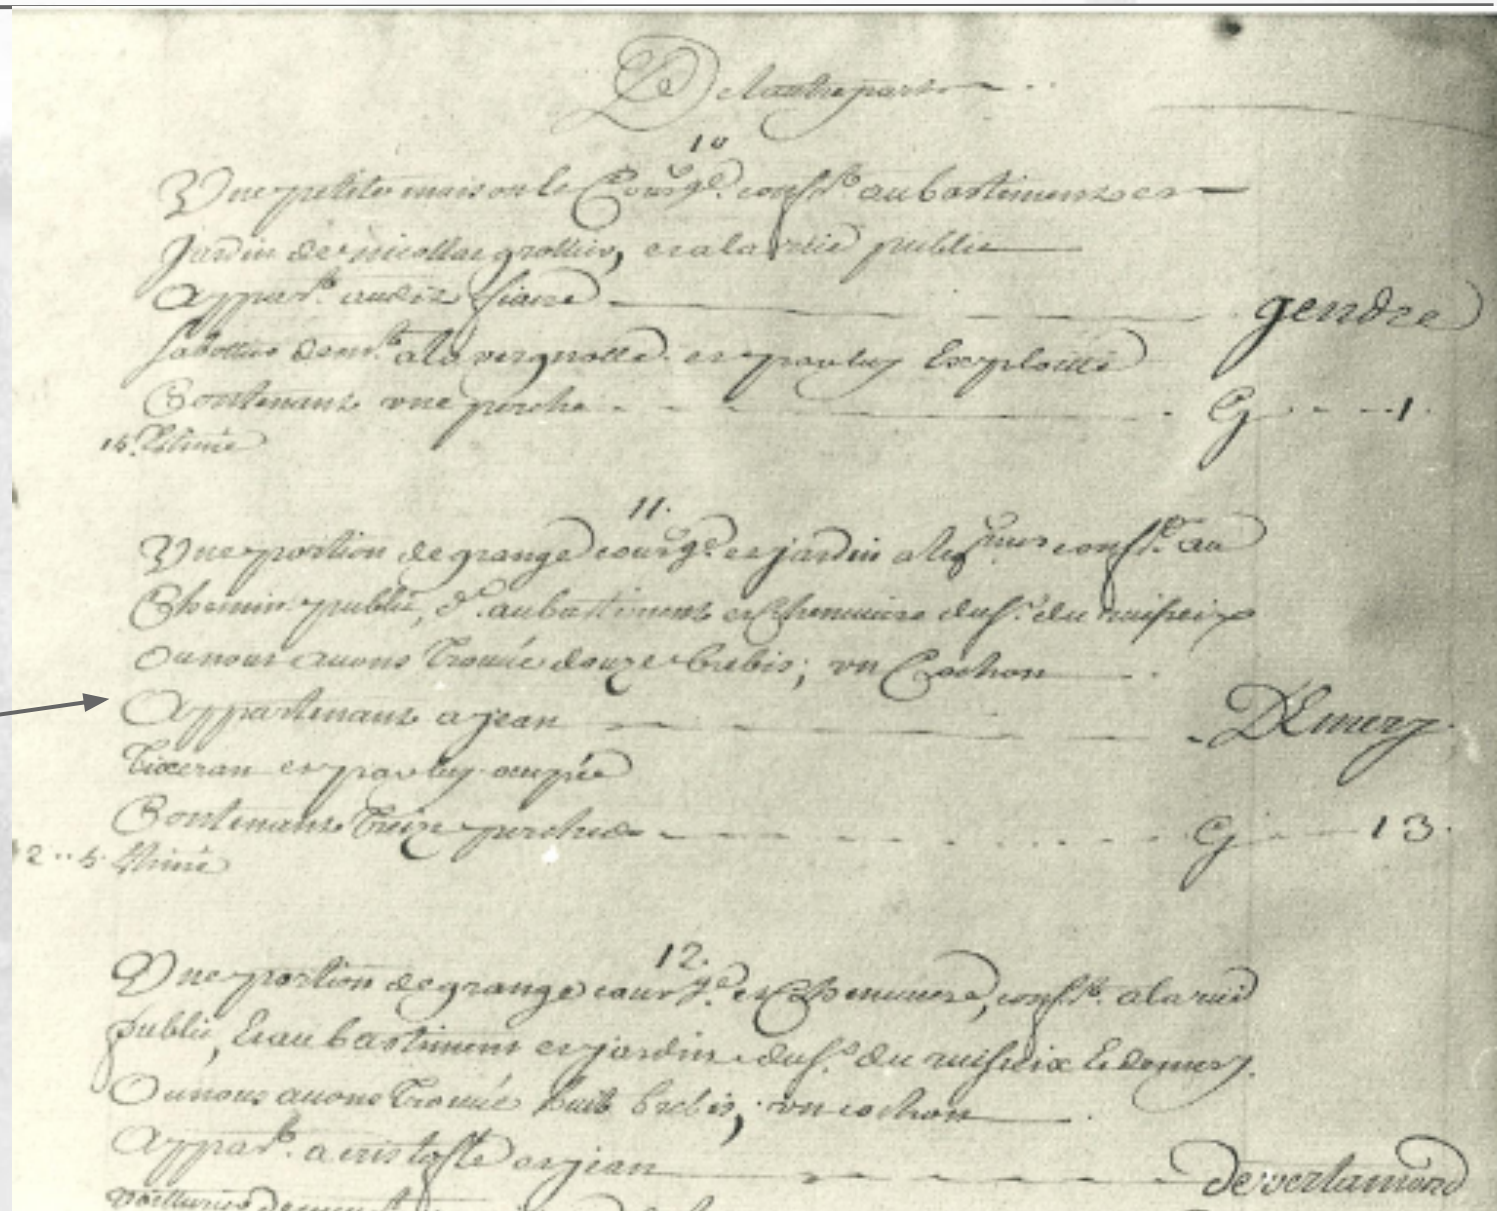 De lautre part
10
Une petite maison le Courge. confte au bastiment et
Jardin de nicollas grollier, et a la rüe public
Appart. audit gendre
demt. a la vergnolle et par luy Exploitté
Contenant une perche G 1.
Estimé
11.
Une portion de grange courge. et jardin confte. au
Chemin public, au bastiment et Chenuiere du Sr. du
Ou nous auons trouué douze brebis, un Cochon
Appartenant a jean DEmery
tixeran et par luy occupée
Contenant treize perches G 13.
2 .. 5. Estimé
12.
Une portion de grange courge. et Chenuiere, confte. a la rüe
public, Et au bastiment et jardin du Sr. du Et demery.
Ou nous auons trouué huit brebis, un cochon
Appart. a cristofle et jean de vertamond